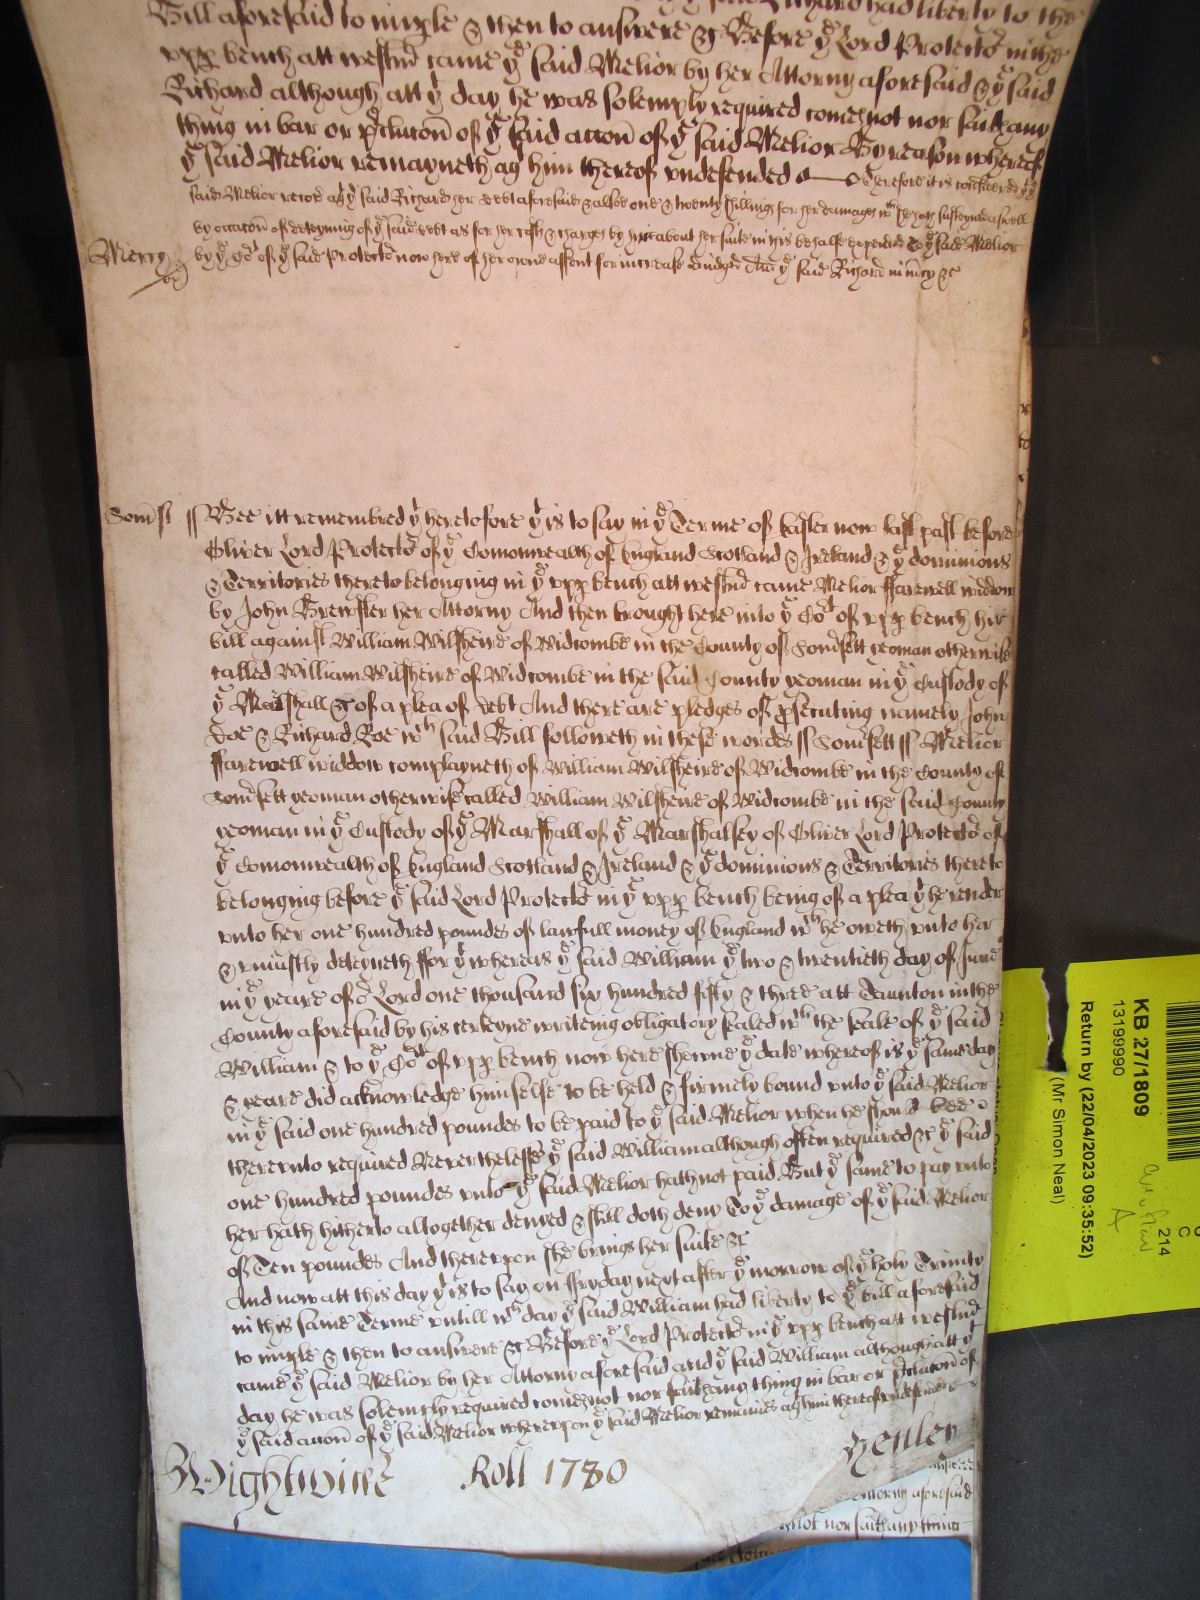 Bill aforesaid to imple & then to answere &c Before ye Lord Protector in the
upp bench att Westmr came ye said Melior by her Attorny aforesaid & ye said
Richard although att yt day he was solemply required comes not nor saith any
thing in bar or preclucon of ye said accon of ye said Melior By reason whereof
ye said Melior remayneth agt him thereof undefended Therefore it is considered yt ye
said Melior recover agt ye said Richard her debt aforesaid & alsoe one & twenty shillings for her damages wch she hath susteyned aswell
by occacon of deteyning of ye said debt as for her costs & charges by her about her suite in this behalfe expended to ye said Melior
Mercy by ye Cort of ye said Protector now here of her owne assent for increase adiudged And ye said Richard in mcy &c
Somst ss Bee itt remembred yt heretofore yt is to say in ye Terme of Easter now last past before
Oliver Lord Protector of ye Comonwealth of England Scotland & Ireland & ye dominions
& Territories thereto belonging in ye upp bench att Westmr came Melior ffarewell widdow
by John Brewster her Attorny And then brought here into ye Cort of upp bench hir
bill against William Wilsheire of Widcombe in the County of Somsett yeoman otherwise
called William Wilsheire of Widcombe in the said County yeoman in ye Custody of
ye Marshall &c of a plea of debt And there are pledges of prsecuting namely John
Doe & Richard Roe wch said Bill followeth in these wordes ss Somsett ss Melior
ffarewell widdow complayneth of William Wilsheire of Widcombe in the County of
Somsett yeoman otherwise called William Wilsheire of Widcombe in the said County
yeoman in ye Custody of ye Marshall of ye Marshalsey of Oliver Lord Protector of
ye Comonwealth of England Scotland & Ireland & ye dominions & Territories thereto
belonging before ye said Lord Protector in ye upp bench being of a plea yt he render
unto her one hundred poundes of lawfull money of England wch he oweth unto her
& uniustly deteyneth ffor yt whereas ye said William ye two & twentieth day of June
in ye yeare of or Lord one thousand six hundred fifty & three att Taunton in the
County aforesaid by his certeyne writeing obligatory sealed wth the seale of ye said
William & to ye Cort of upp bench now here shewne ye date whereof is ye same day
& yeare did acknowledge himselfe to be held & firmely bound unto ye said Melior
in ye said one hundred poundes to be paid to ye said Melior when he should bee
thereunto required Neverthelesse ye said William although often required &c ye said
one hundred poundes unto ye said Melior hath not paid But ye same to pay unto
her hath hitherto altogether denyed & still doth deny To ye damage of ye said Melior
of Ten poundes And thereupon she brings her suite &c
And now att this day yt is to say on ffryday next after ye morrow of ye holy Trinity
in this same Terme untill wch day ye said William had liberty to ye bill aforesaid
to imple & then to answere &c Before ye Lord Protector in ye upp bench att Westmr
came ye said Melior by her Attorny aforesaid and ye said William although att yt
day he was solemply required comes not nor saith any thing in bar or preclucon of
ye said accon of ye said Melior whereupon ye said Melior remaines agt him thereof undefended
Wightwicke Roll 1780 Henley
morny aforesaid
not nor saith any thing
KB 27/1809
13199990
Return by (22/04/2023 09:35:52)
(Mr Simon Neal)
214
A